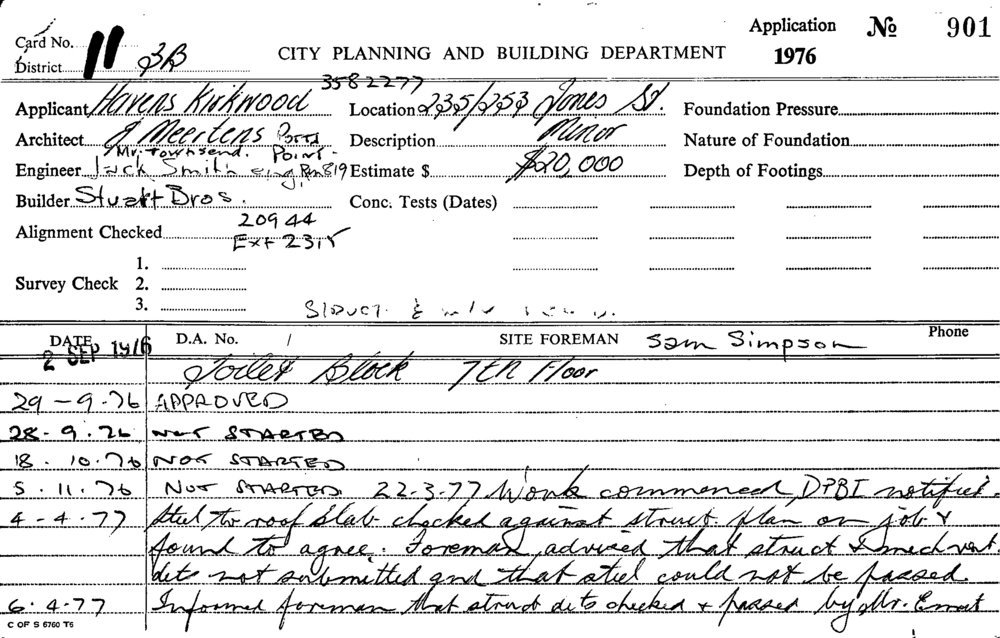 Card No. 11 3B
District
CITY PLANNING AND BUILDING DEPARTMENT
Application No 901
1976
3582277
Applicant Havens Kirkwood Location 235/253 Jones St. Foundation Pressure
Architect A Meertens Potts Description Minor Nature of Foundation
Mr. Townsend. Point.
Engineer Jack Smith eng. Rm 819 Estimate $ $20,000 Depth of Footings
Builder Stuart Bros. Conc. Tests (Dates)
20944
Alignment Checked Ext 2315
1.
Survey Check 2.
3.
Struct. &
DATE D.A. No. / SITE FOREMAN Sam Simpson Phone
2 SEP 1976
Toilet Block 7th Floor
29-9-76 APPROVED
28.9.76 NOT STARTED
18.10.76 NOT STARTED
5.11.76 NOT STARTED. 22-3-77 Work commenced, DPBI notified.
4-4-77 Steel to roof slab checked against struct. plan on job &
found to agree. Foreman advised that struct & mech vent.
dets not submitted and that steel could not be passed.
6.4.77 Informed foreman that struct dets checked & passed by Mr. Ernest
C OF S 6760 T6